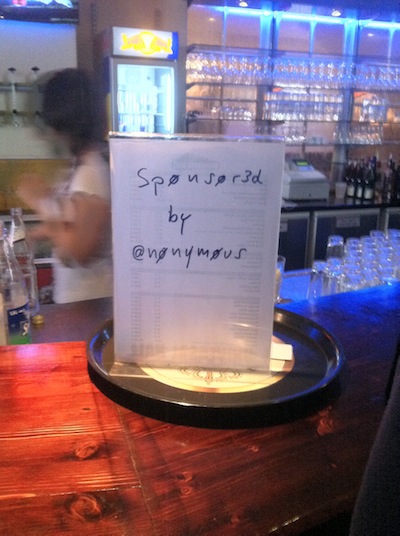 Spønsør3d
by
@nønymøus